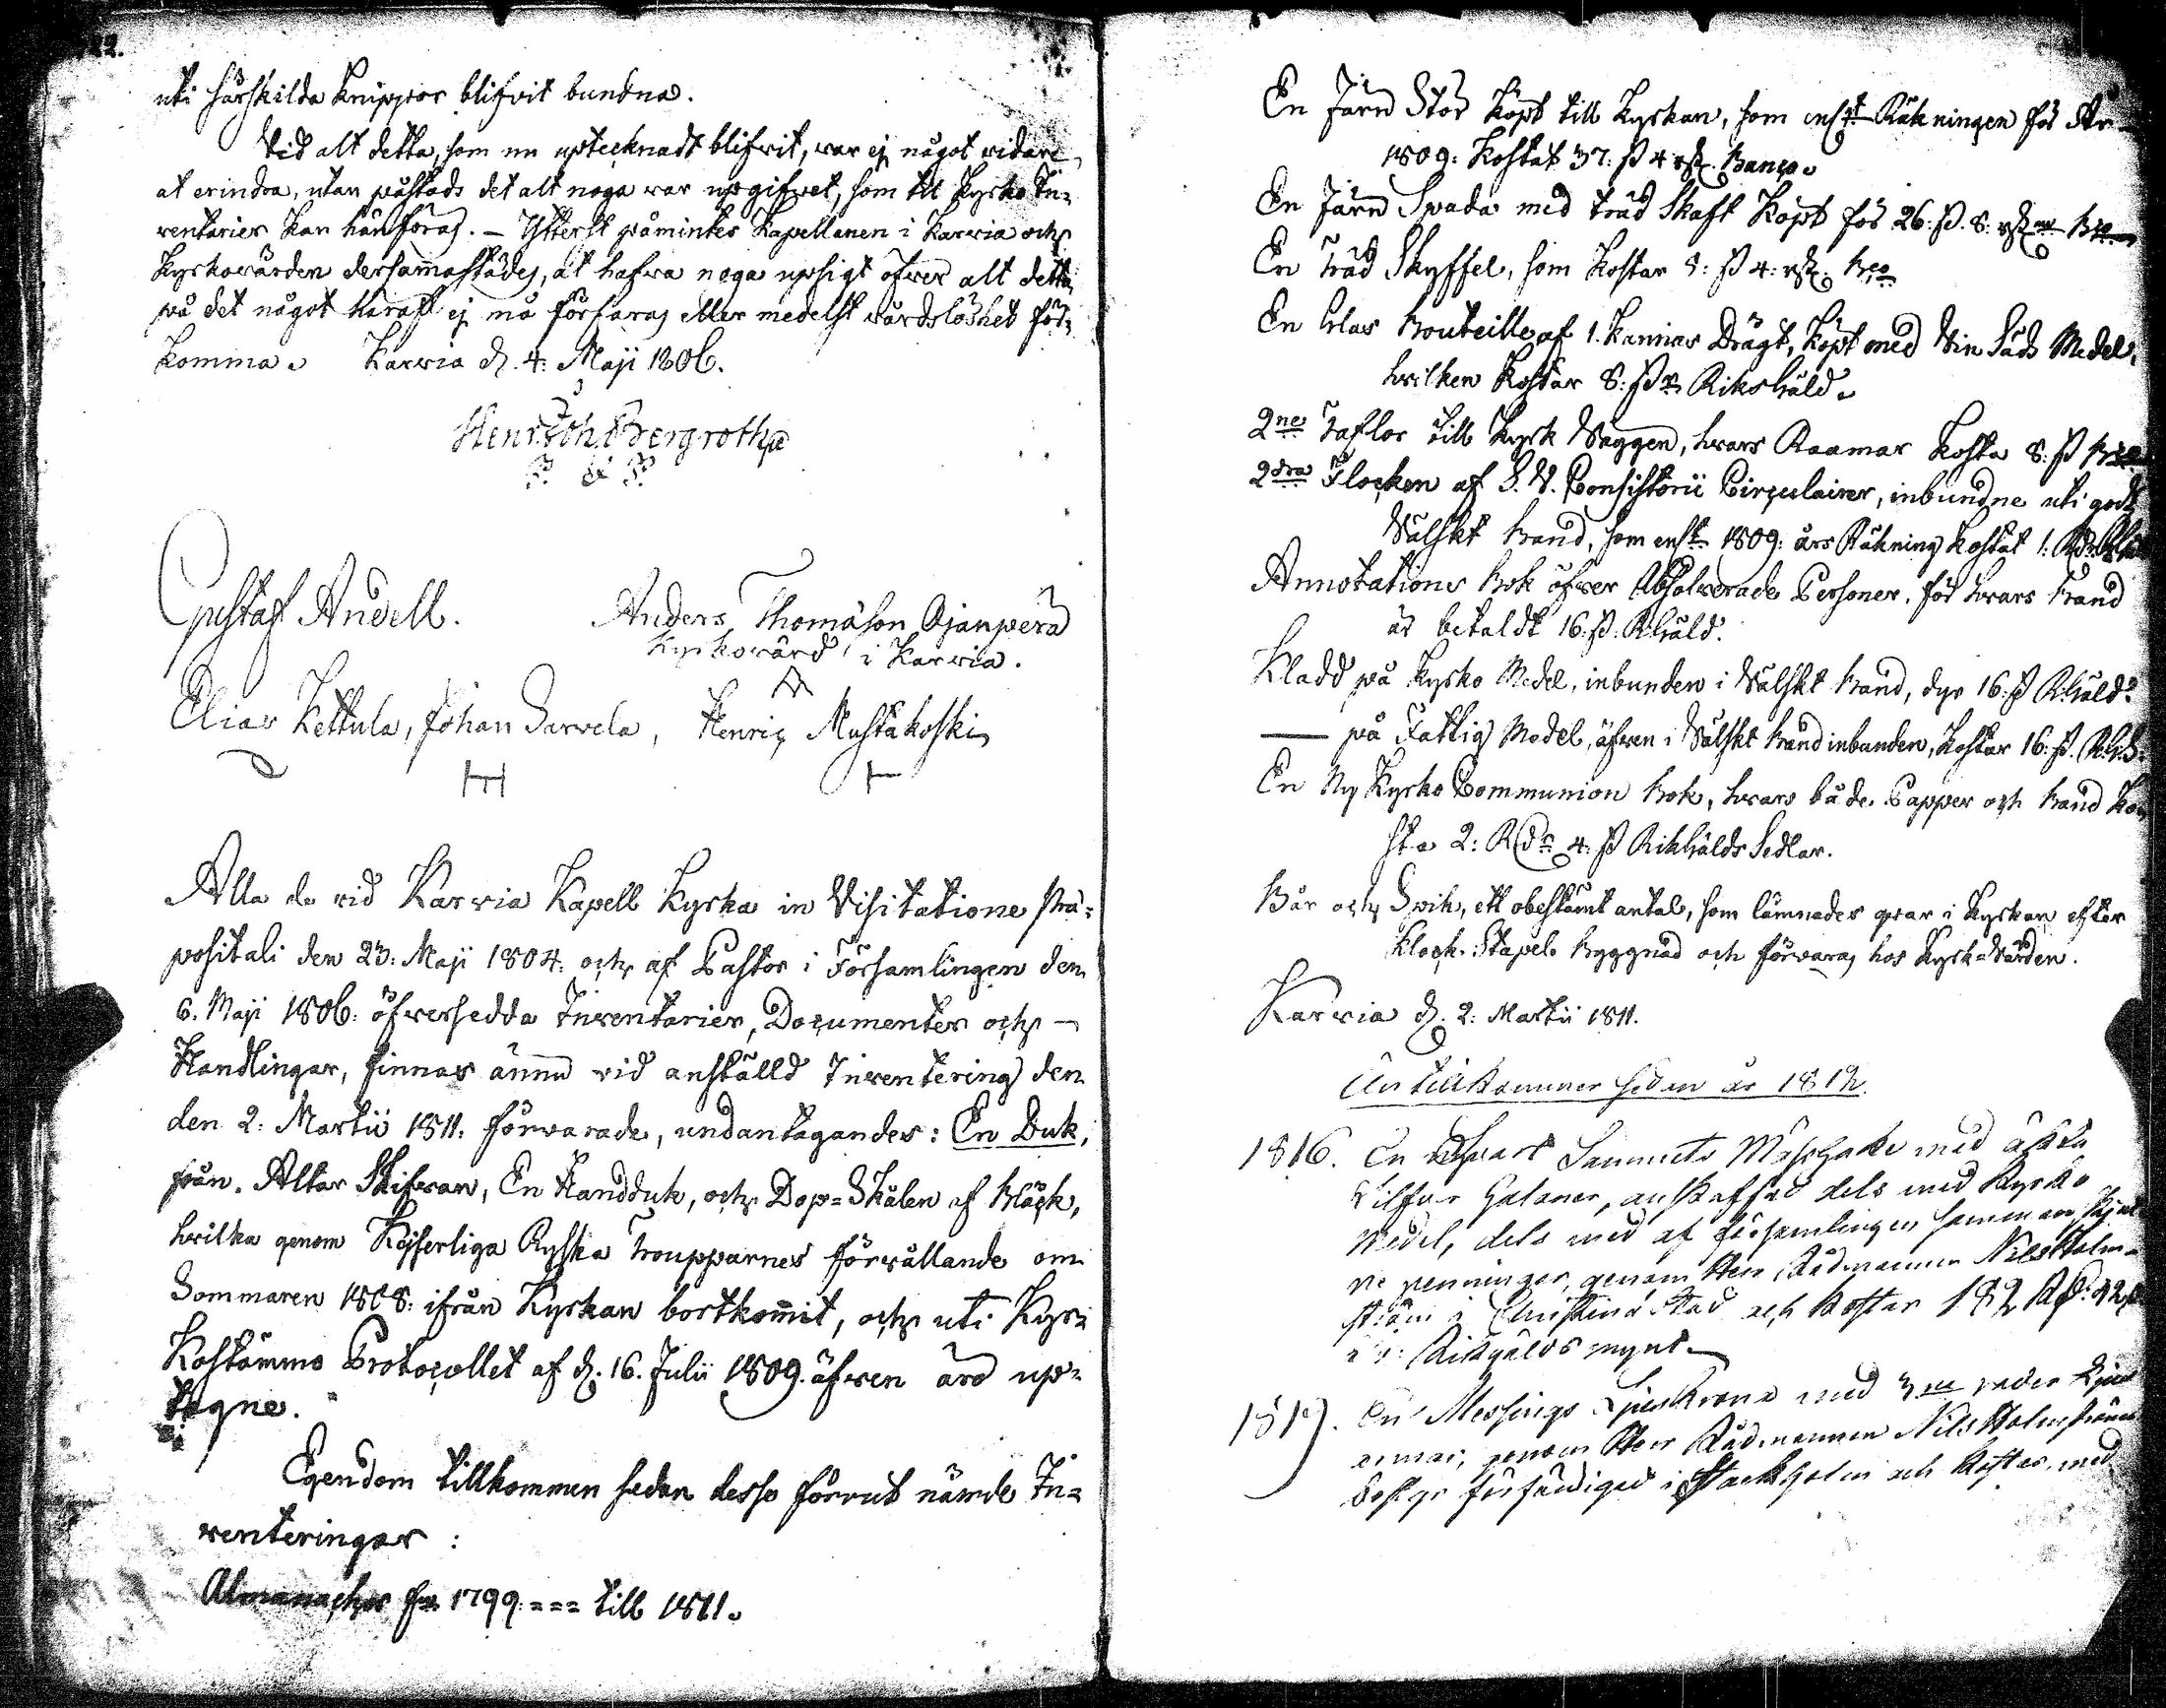 22.
uti särskilda Knippor blifvit bundna.
Vid alt detta, som nu uptecknadt blifvit, war ej något widare
at erindra, utan påstods det alt noga war upgifvet, som til Kyrko In-
ventarier kan hänföras. – Ytterst påmintes Kapellanen i Karvia och
Kyrkovärden dersammastädes, at hafva noga upsigt öfver alt detta,
på det något häraf ej må förfaras eller medelst vårdslöshet för-
komma. Karvia d. 4: Maji 1806.
Henr: Joh: Bergroth
P. & P.
Gustaf Andell.
Anders Thomasson Ojanperä
Kyrkovärd i Karvia.
Elias Kettula, Johan Sarvela, Henric Mustakoski
Alla de vid Karvia Kapell Kyrka in Visitatione Præ-
positali den 23: Maji 1804. och af Pastor i Församlingen den
6. Maji 1806: öfversedda Inventarier, Documenter och –
Handlingar, finnas ännu vid anställd Inventering den
den 2: Martii 1811. förvarade, undantagandes: En Duk,
från Altar Skifvan, En Handduk, och Dop-Skålen af Bläck,
hvilka genom Kejserliga Ryska Troupparnes förvållande om
Sommaren 1808: ifrån Kyrkan bortkommit, och uti Kyr-
kostämmo Protocollet af d. 16. Julii 1809. äfven äro up-
tagne.
Egendom tillkommen sedan desse förrut nämde In-
venteringar:
Almanachor från 1799: === till 1811.
En Järn Stör köpt till Kyrkan, som enligt Räkningen för År
1809: kostat 37: ß 4 rst. Banco.
En Järn Spada med träd Skaft köpt för 26: ß. 8: rst. Bco
En Träd Skyffel, som kostar 5: ß 4: rst. Bco
En Glas Bouteille af 1. Kannas Drägt, köpt med Vin Säds Medel,
hvilken kostar 8: ß Riksgäld.
2ne Taflor till Kyrk Väggen, hvars Raamar kosta 8: ß Bco
2dra Flocken af S. V. Consistorii Circulairer, inbundne uti godt
Välskt Band, som enligt 1809: års Räkning kostat 1: Rd
Annotations Bok öfver Absolverade Personer, för hvars Band
är betaldt 16: ß. Rgäld.
Kladd på Kyrko Medel, inbunden i Välskt Band, dyr 16: ß Rgäld.
—— på Fattig Medel, äfven i Välskt Band inbunden, kostar 16: ß. R.G.S.
En Ny Kyrko Communion Bok, hvars både Papper och Band ko-
sta 2: Rdr 4: ß Riksgälds Sedlar.
Bår och Spik, ett obestämt antal, som lämnades qvar i Kyrkan efter
Klock-Stapels Byggnad och förvaras hos Kyrko-Värden.
Karvia d. 2: Martii 1811.
Än tillkommer sedan år 1812
1816. En Svart Sammets Mässhake med ächta
Silfver Galoner, anskaffad dels med Kyrko
Medel, dels med af församlingen sammanskjut-
ne penningar, genom Herr Rådmannen Nils Holm-
ström i Christinæ Stad och kostar 182 Rd: 32 ß
Riksgälds mynt.
1817. En Messings Ljus Krona med 2ne rader Ljus
armar, genom Herr Rådmannen Nils Holmströms
försorg förfärdigad i Stockholm och kostar med